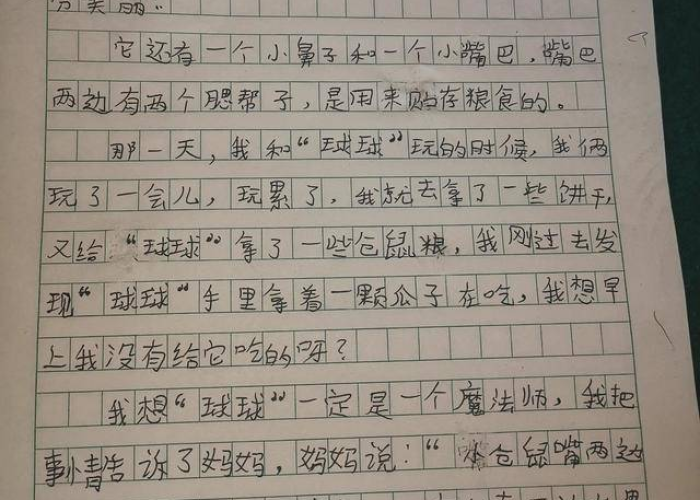 分美丽。
它还有一个小鼻子和一个小嘴巴，嘴巴
两边有两个腮帮子，是用来贮存粮食的。
那一天，我和“球球”玩的时候，我俩
玩了一会儿，玩累了，我就去拿了一些饼干，
又给“球球”拿了一些仓鼠粮，我刚过去发
现“球球”手里拿着一颗瓜子在吃，我想早
上我没有给它吃的呀？
我想“球球”一定是一个魔法师，我把
事情告诉了妈妈，妈妈说：“小仓鼠嘴两边